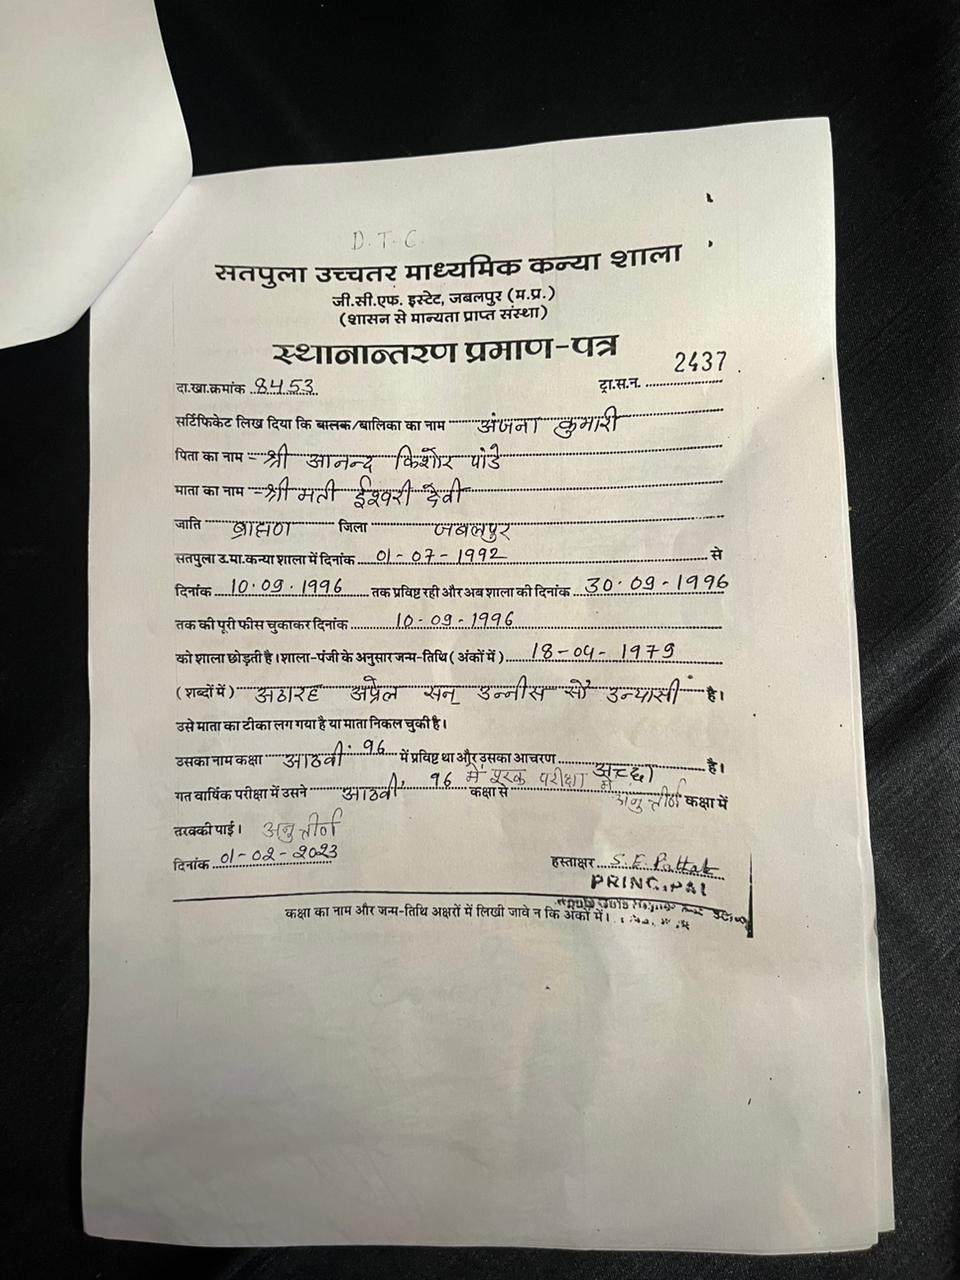 D. T. C.
सतपुला उच्चतर माध्यमिक कन्या शाला
जी.सी.एफ. इस्टेट, जबलपुर (म.प्र.)
(शासन से मान्यता प्राप्त संस्था)
स्थानान्तरण प्रमाण-पत्र
2437
दा.खा.क्रमांक 8453 ट्रा.स.न.
सर्टिफिकेट लिख दिया कि बालक/बालिका का नाम अंजना कुमारी
पिता का नाम - श्री आनन्द किशोर पांडे
माता का नाम - श्रीमती ईश्वरी देवी
जाति ब्राह्मण जिला जबलपुर
सतपुला उ.मा.कन्या शाला में दिनांक 01-07-1992 से
दिनांक 10.09.1996 तक प्रविष्ट रही और अब शाला की दिनांक 30.09-1996
तक की पूरी फीस चुकाकर दिनांक 10-09-1996
को शाला छोड़ती है। शाला-पंजी के अनुसार जन्म-तिथि (अंकों में) 18-04-1979
(शब्दों में) अठारह अप्रेल सन् उन्नीस सौ उन्यासी है।
उसे माता का टीका लग गया है या माता निकल चुकी है।
उसका नाम कक्षा आठवी 96 में प्रविष्ट था और उसका आचरण अच्छा है।
गत वार्षिक परीक्षा में उसने आठवी 96 में पूरक परीक्षा में कक्षा से अनुत्तीर्ण कक्षा में
तरक्की पाई। अनुत्तीर्ण
दिनांक 01-02-2023 हस्ताक्षर
PRINCIPAL
कक्षा का नाम और जन्म-तिथि अक्षरों में लिखी जावे न कि अंकों में।